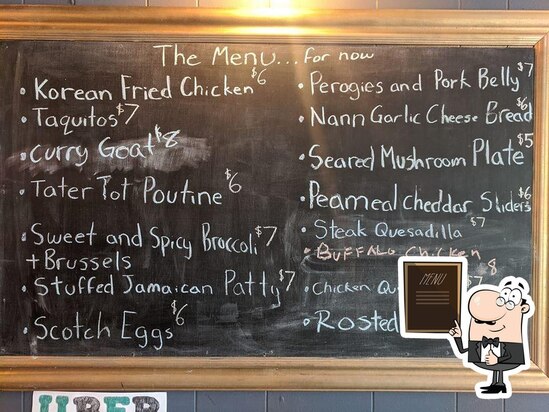 The Menu... for now
Korean Fried Chicken $6
Taquitos $7
Curry Goat $8
Tater Tot Poutine $6
Sweet and Spicy Broccoli $7
+ Brussels
Stuffed Jamaican Patty $7
Scotch Eggs $6
Perogies and Pork Belly $7
Nann Garlic Cheese Bread $6
Seared Mushroom Plate $5
Peameal cheddar Sliders $6
Steak Quesadilla $7
BUFFALO Chicken
8
Chicken
Rosted
MENU
UBER